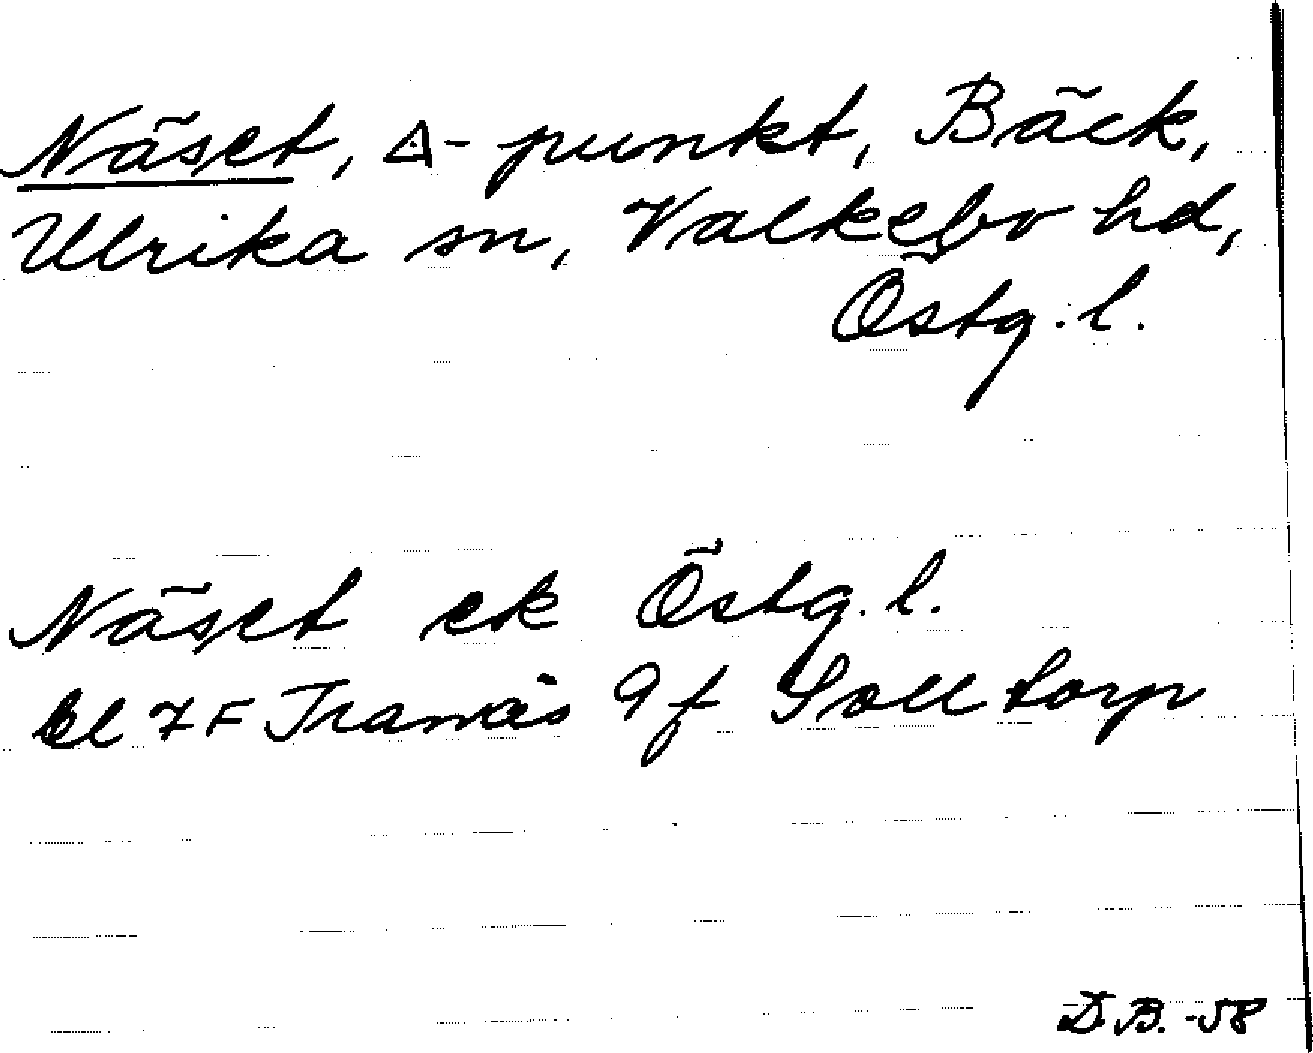 Näset, △-punkt, Bäck,
Ulrika sn, Valkebo hd,
Östg. l.
Näset ek Östg. l.
Bl 7F Tranås 9f Solltorp
D.B. -58